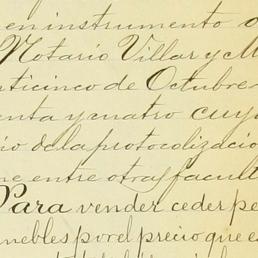 en instrumento o
Notario Villar y M
nticinco de Octubre
enta y cuatro cuy
io de la protocolizacio
ne entre otras facult
Para vender ceder pe
muebles por el precio que es